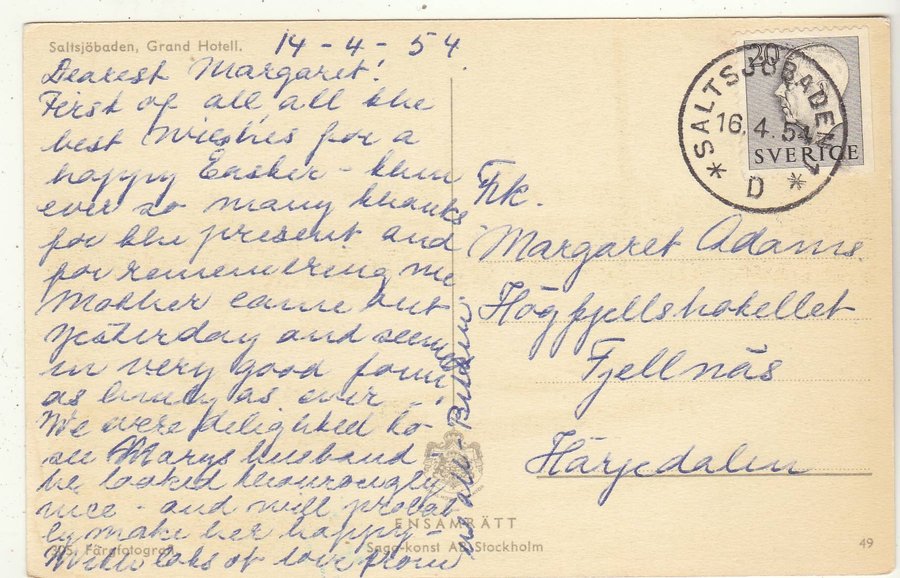 Saltsjöbaden, Grand Hotell.
14-4-54
Dearest Margaret!
First of all all the
best Wishes for a
happy Easter - then
ever so many thanks
for the present and
for remembering me
Mother came out
yesterday and seems
in very good form,
as lively as ever -
We were delighted to
see Marys husband -
he looked thouroughly
nice - and will probab
ly make her happy -
With lots of love from
us all -
20
SVERIGE
SALTSJÖBADEN 1
16.4.54
* D *
Frk.
Margaret Adams.
Högfjellshotellet
Fjellnäs
Härjedalen
ENSAMRÄTT
Färgfotografi
Saga-konst AB Stockholm
49